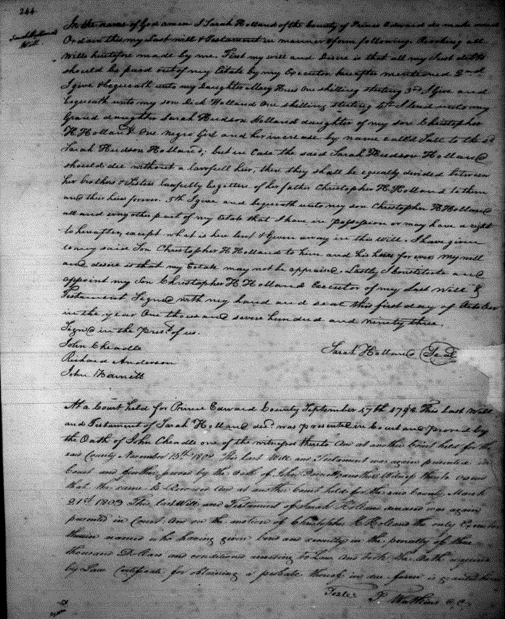 244
Sarah Holland
Will
In the name of God amen I Sarah Holland of the County of Prince Edward do make and
Ordain this my last will & Testament in manner & form following. Revoking all
Wills heretofore made by me. First my will and Desire is that all my Just debts
should be paid out of my Estate by my Executor hereafter mentioned 2nd
I give & bequeath unto my Daughter Mary one shilling sterling 3rd I give and
bequeath unto my son Dick Holland one shilling sterling 4th I lend unto my
Grand daughter Sarah Hudson Holland daughter of my son Christopher
H Holland One negro Girl and her increase by name call'd to the sd
Sarah Hudson Holland; but in Case the said Sarah Hudson Holland
should die without a lawfull heir, then they shall be equally divided between
her brothers & Sisters lawfully begotten of her father Christopher H Holland to them
and their heirs forever. 5th I give and bequeath unto my son Christopher H Holland
all and every other part of my Estate that I have in possession or may have a right
to hereafter, except what is here lent & given away in this will. I have given
to my said Son Christopher H Holland to him and his heirs for ever My will
and desire is that my Estate may not be appraised. Lastly I constitute and
appoint my Son Christopher H Holland Executor of my last Will &
Testament. Signed with my hand and seal this first day of October
in the year One thousand seven hundred and ninety three.
Signed in the presence of us.
John Cheadle
Richard Anderson
John
Sarah Holland Seal
At a Court held for Prince Edward County September 17th This last Will
and Testament of Sarah Holland decd. was presented in Court and proved by
the Oath of John Cheadle one of the witnesses thereto And at another Court held for the
said County November The last Will and Testament was again presented in
Court and further proved by the Oath of John another Witness thereto
that the same And at another Court held for the said County March
21st 1803 This last Will and Testament of Sarah Holland deceased was again
presented in Court And on the motion of Christopher H Holland the only Executor
therein named who having given bond and security in the penalty of
thousand Dollars and conditioned according to Law and took the Oath required
by Law Certificate for obtaining a probate thereof in due form is granted him
Teste
Watkins